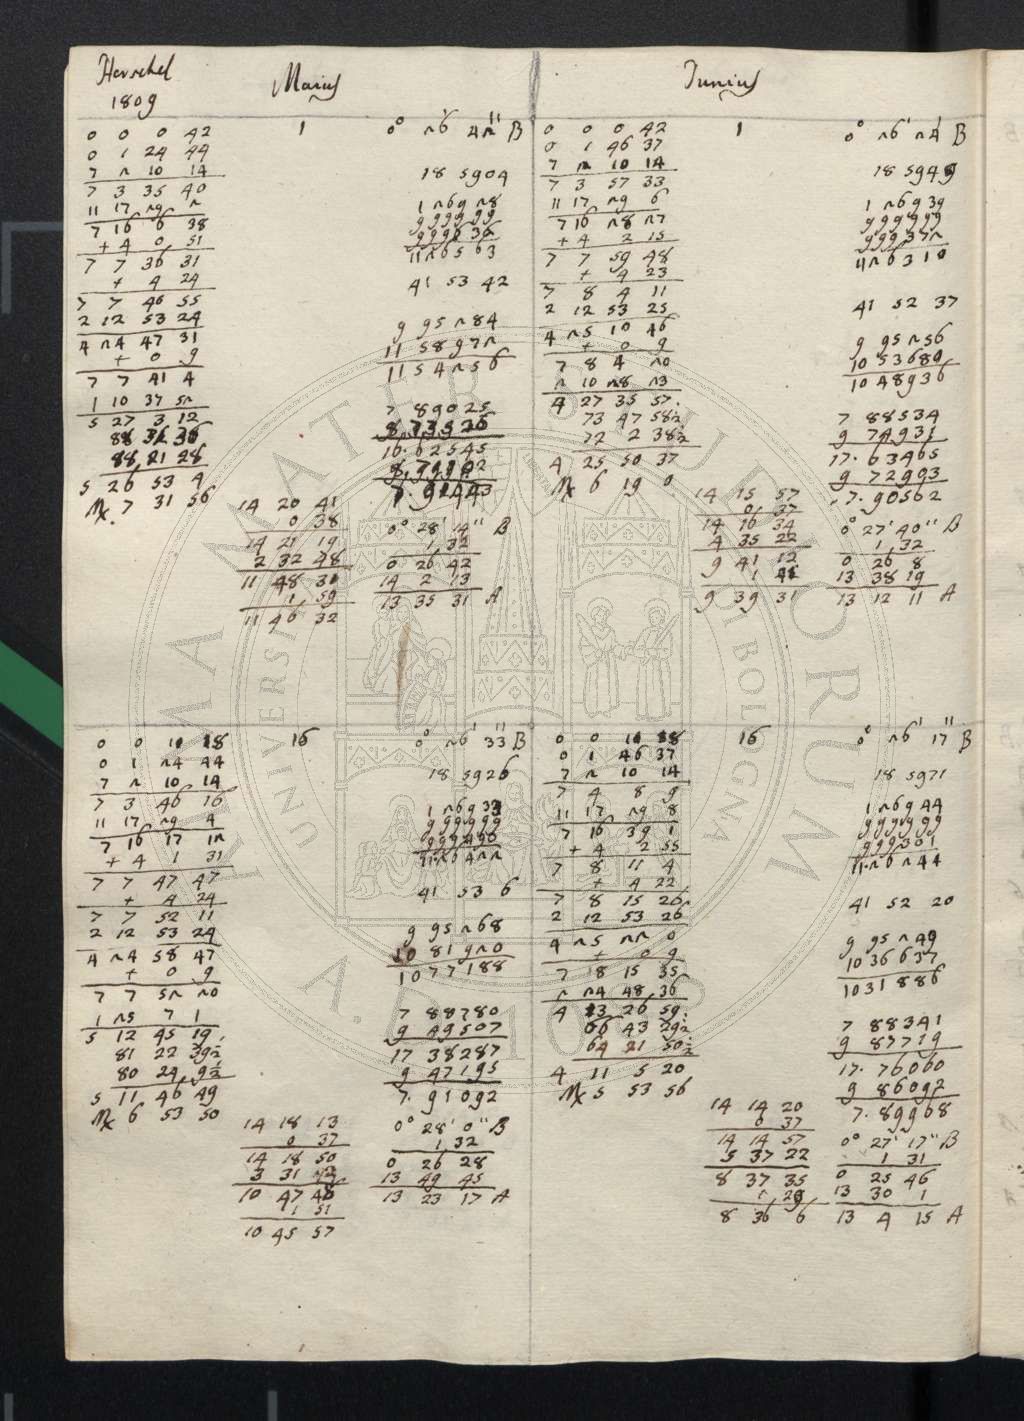 Herschel
1809
Maius
Junius
1
0 0 0 42
0 1 24 44
7 2 10 14
7 3 35 40
11 17 29 2
7 16 6 38
+ 4 0 51
7 7 36 31
+ 4 24
7 7 40 55
2 12 53 24
4 24 47 31
+ 0 9
7 7 41 4
1 10 37 52
5 27 3 12
88 21 28
5 26 53 4
7 31 56
0° 26' 42" B
18 5904
1 26928
999999
1126563
41 53 42
9 95284
11 58972
11 54256
7 89025
10.62545
14 20 41
0 38
14 21 19
2 32 48
11 48 31
1 59
11 46 32
0° 28' 14" B
1 32
0 26 42
14 2 13
13 35 31 A
1
0 0 0 42
0 1 46 37
7 2 10 14
7 3 57 33
11 17 29 6
7 16 28 27
+ 4 2 15
7 7 59 48
+ 4 23
7 8 4 11
2 12 53 25
4 25 10 46
+ 0 9
7 8 4 20
2 10 28 23
4 27 35 57
73 47 58½
72 2 38½
4 25 50 37
6 19 0
0° 26' 24" B
18 5949
1 26939
999999
999372
1126310
41 52 37
9 95256
10 53680
10 48936
7 88534
9 74931
17.63465
9 72993
7.90562
14 15 57
0 37
14 16 34
4 35 22
9 41 12
1 41
9 39 31
0° 27' 40" B
1 32
0 26 8
13 38 19
13 12 11 A
16
0 0 10 18
0 1 24 44
7 2 10 14
7 3 46 16
11 17 29 4
7 16 17 12
+ 4 1 31
7 7 47 47
+ 4 24
7 7 52 11
2 12 53 24
4 24 58 47
+ 0 9
7 7 52 20
1 25 7 1
5 12 45 19
81 22 39½
80 24 9½
5 11 46 49
6 53 50
0° 26' 33" B
18 5926
1 26933
999999
41 53 6
9 95268
10 81920
10 77188
7 88780
9 49507
17 38287
9 47195
7.91092
14 18 13
0 37
14 18 50
10 47 48
1 51
10 45 57
0° 28' 0" B
1 32
0 26 28
13 49 45
13 23 17 A
16
0 0 10 18
0 1 46 37
7 2 10 14
7 4 8 9
11 17 29 8
7 16 39 1
+ 4 2 55
7 8 11 4
+ 4 22
7 8 15 26
2 12 53 26
4 25 22 0
+ 0 9
7 18 15 35
2 24 48 36
4 13 26 59
66 43 29½
64 21 50½
4 11 5 20
5 53 56
0° 26' 17" B
18 5971
1 26944
999999
999301
11.26244
41 52 20
9 95249
10 36637
10 31886
7 88341
9 87719
17.76060
9 86092
7.89968
14 14 20
0 37
14 14 57
5 37 22
8 37 35
1 29
8 36 6
0° 27' 17" B
1 31
0 25 46
13 30 1
13 4 15 A
ALMA MATER STUDIORUM
UNIVERSITÀ DI BOLOGNA
A.D. 1088